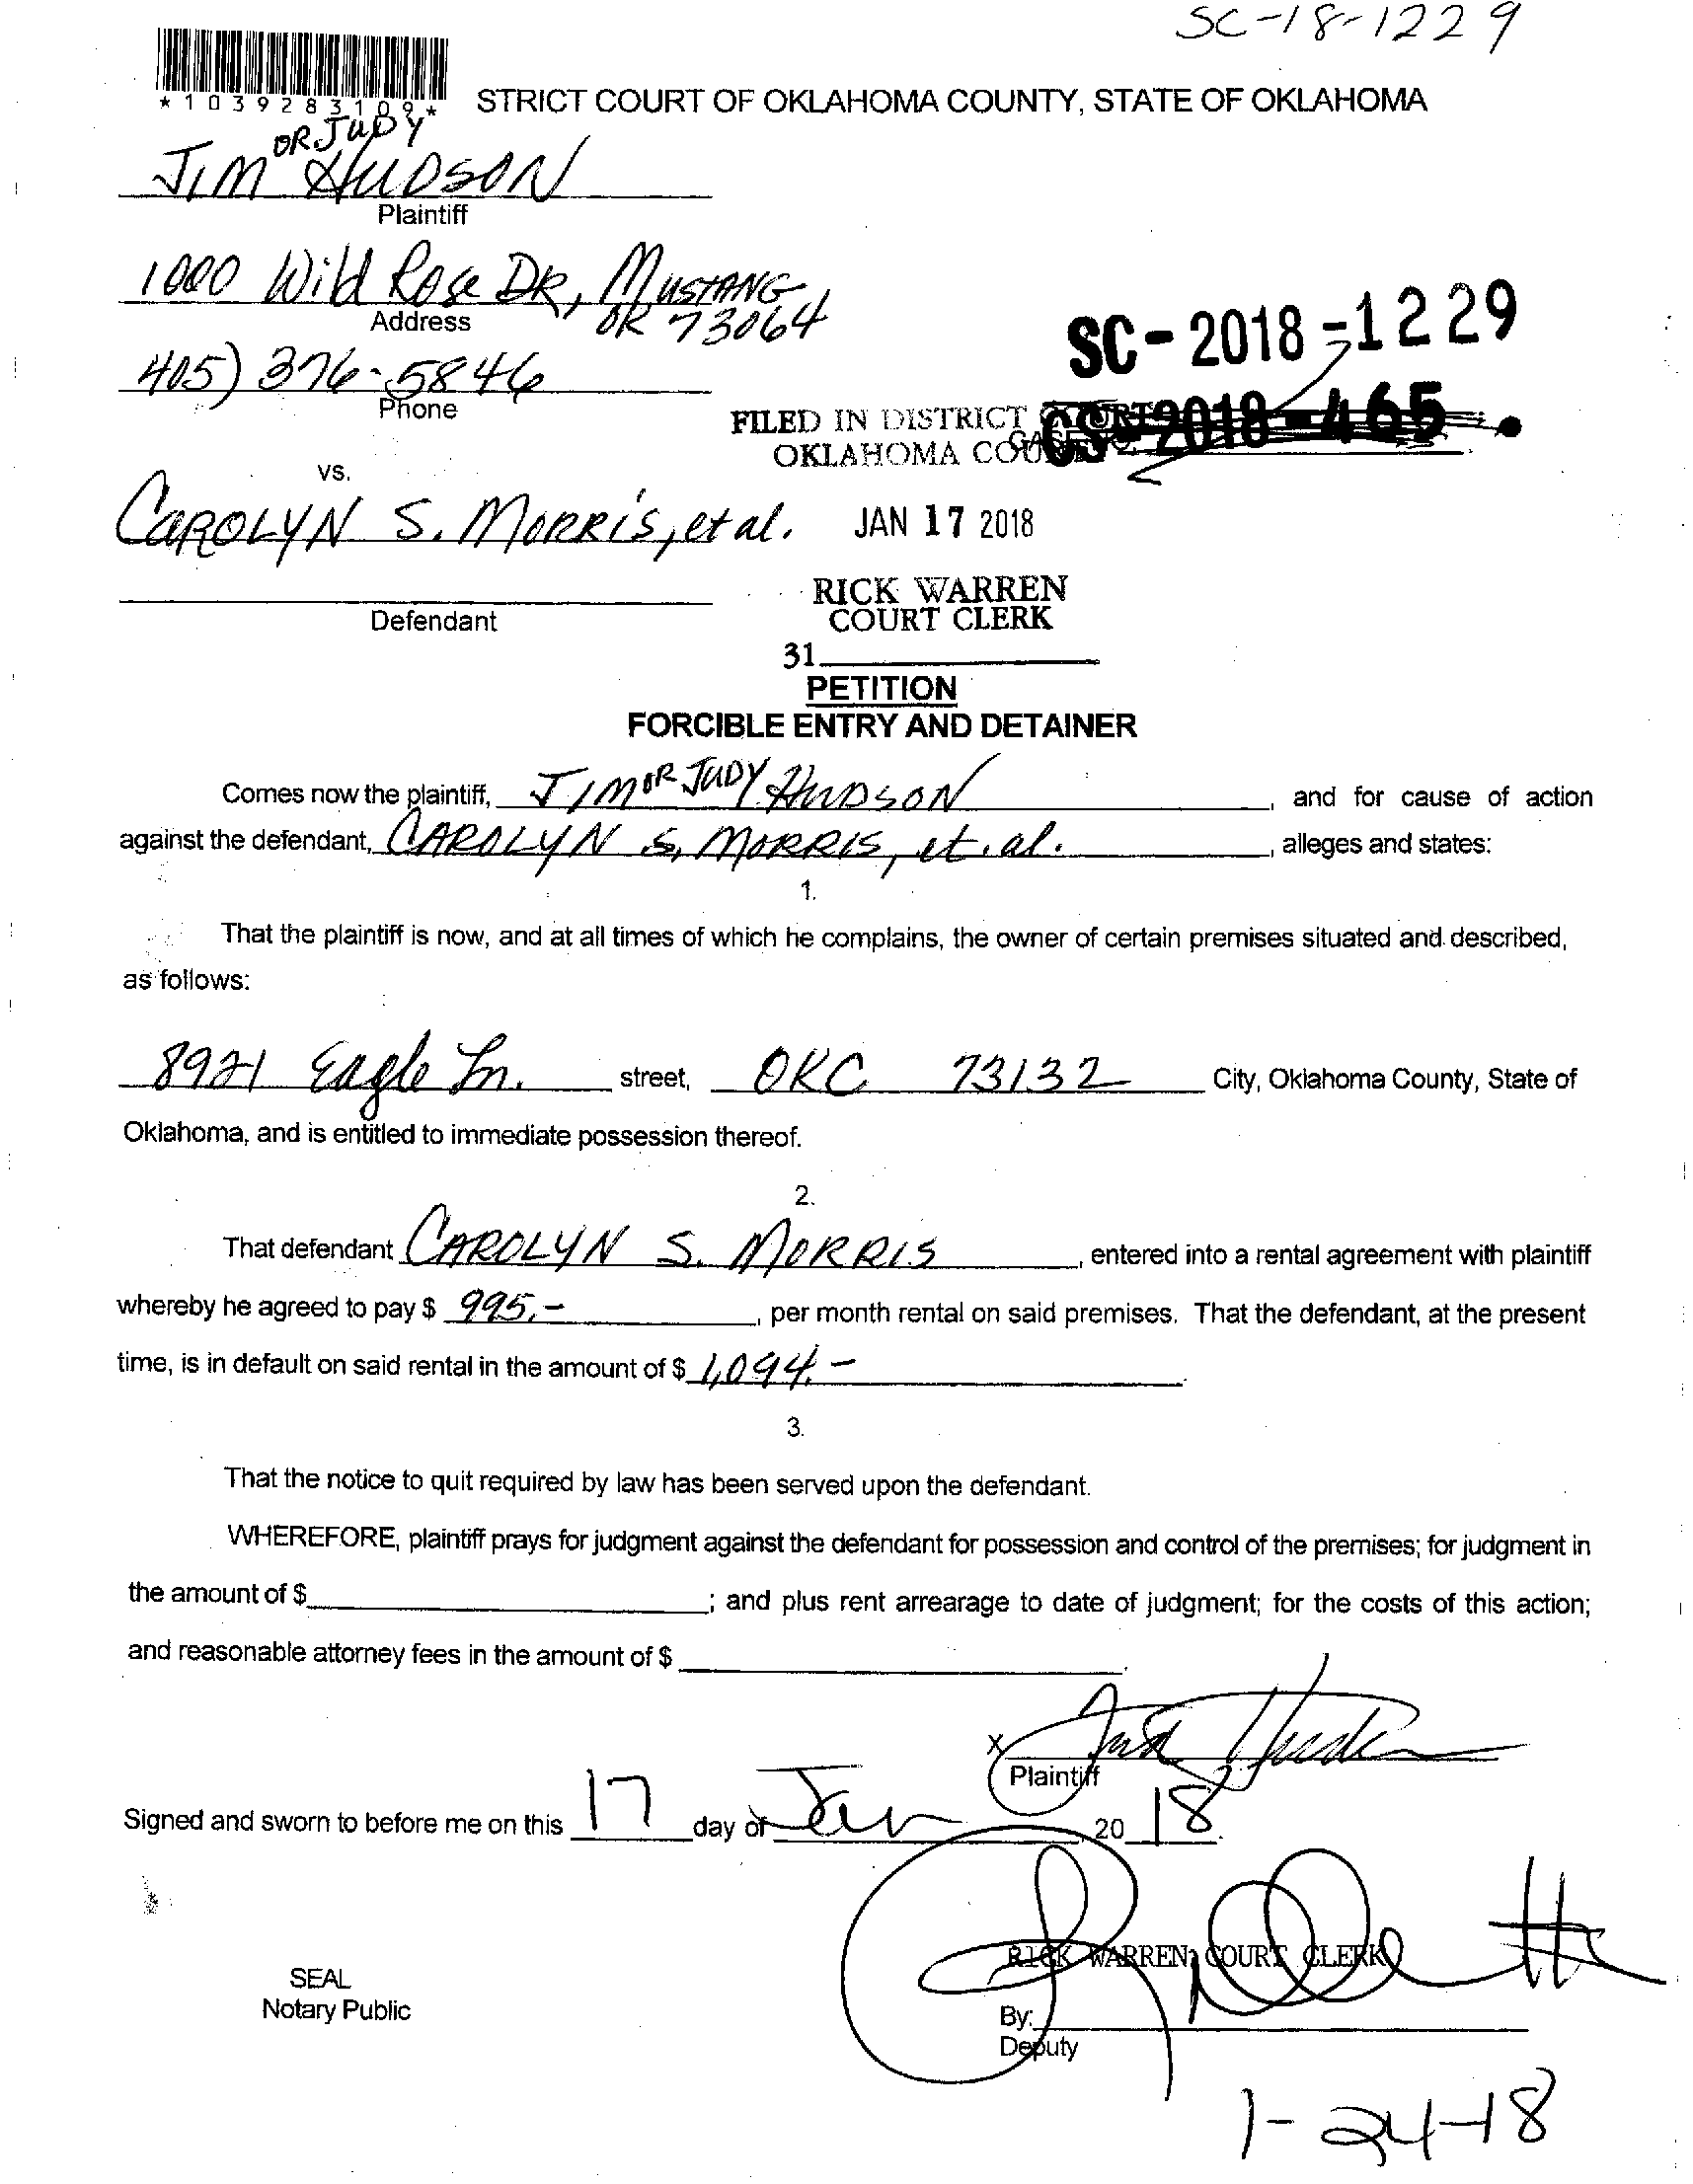 SC-18-1229
*1039283109*
STRICT COURT OF OKLAHOMA COUNTY, STATE OF OKLAHOMA
OR JUDY
JIM HUDSON
Plaintiff
1000 Wild Rose DR, MUSTANG
Address
OK 73064
405) 376-5846
Phone
SC-2018-1229
FILED IN DISTRICT COURT
CS-2018-465
OKLAHOMA COU
vs.
CAROLYN S. MORRIS, et al.
JAN 17 2018
RICK WARREN
COURT CLERK
Defendant
31
PETITION
FORCIBLE ENTRY AND DETAINER
Comes now the plaintiff, JIM OR JUDY HUDSON, and for cause of action
against the defendant, CAROLYN S, MORRIS, et. al. , alleges and states:
1.
That the plaintiff is now, and at all times of which he complains, the owner of certain premises situated and described,
as follows:
8921 Eagle Ln. street, OKC 73132 City, Oklahoma County, State of
Oklahoma, and is entitled to immediate possession thereof.
2.
That defendant CAROLYN S. MORRIS, entered into a rental agreement with plaintiff
whereby he agreed to pay $ 995.-, per month rental on said premises. That the defendant, at the present
time, is in default on said rental in the amount of $ 1,094.-.
3.
That the notice to quit required by law has been served upon the defendant.
WHEREFORE, plaintiff prays for judgment against the defendant for possession and control of the premises; for judgment in
the amount of $ ; and plus rent arrearage to date of judgment; for the costs of this action;
and reasonable attorney fees in the amount of $ .
X
Plaintiff
Signed and sworn to before me on this 17 day of Jan, 20 18.
RICK WARREN, COURT CLERK
SEAL
Notary Public
By:
Deputy
1-24-18